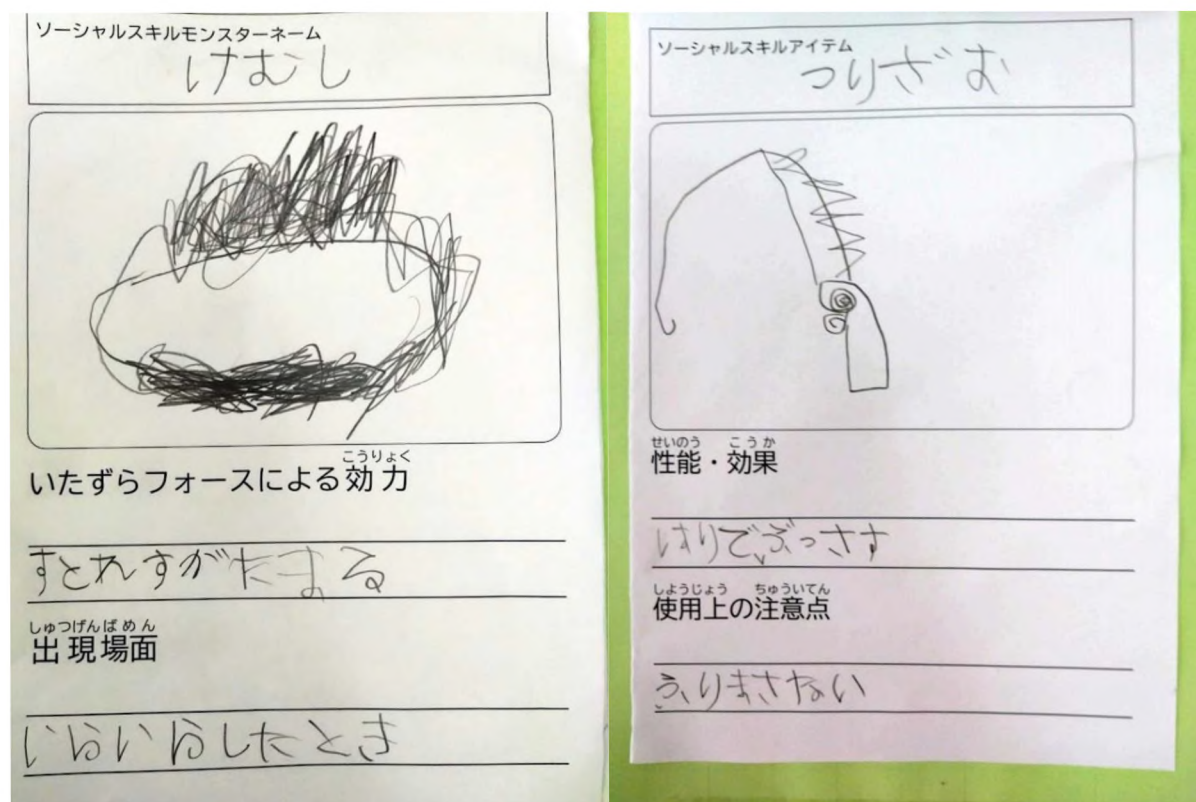 ソーシャルスキルモンスターネーム
けむし
いたずらフォースによる効力
こうりょく
すとれすがたまる
しゅつげんばめん
出現場面
いらいらしたとき
ソーシャルスキルアイテム
つりざお
せいのう こうか
性能・効果
はりでぶっさす
しようじょう ちゅういてん
使用上の注意点
ふりまさない